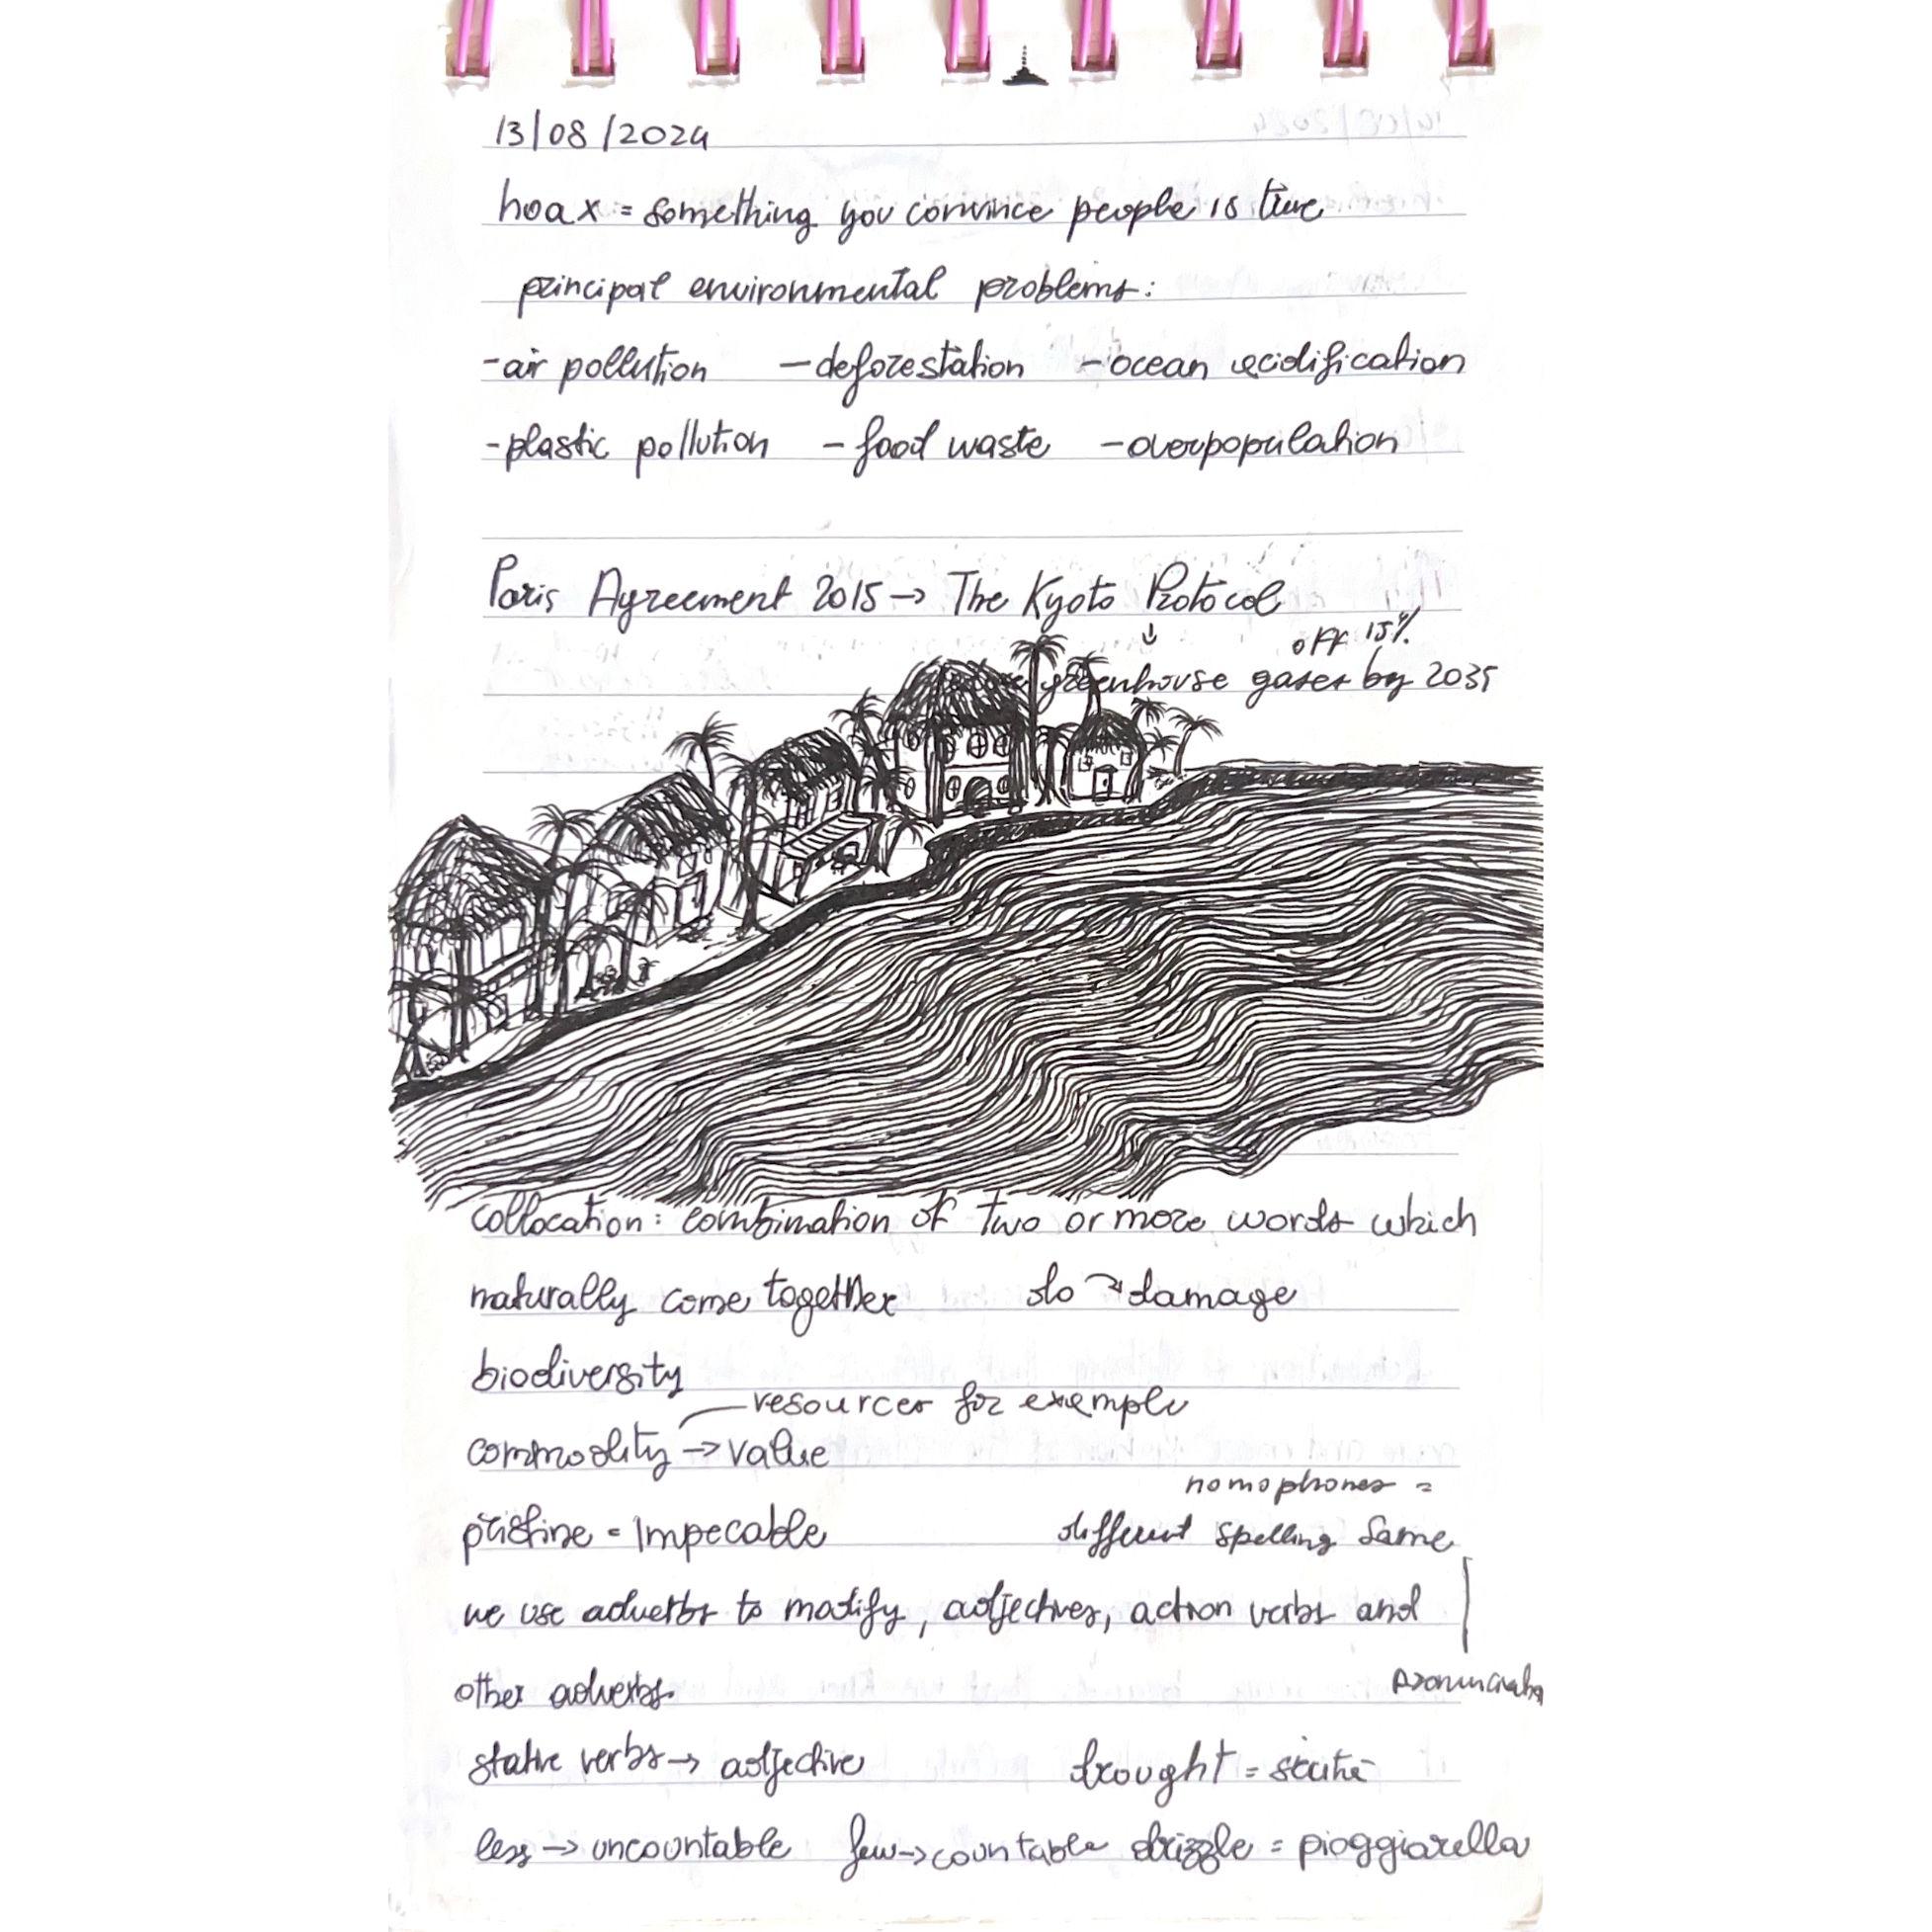 13/08/2024
hoax = something you convince people is true
principal environmental problems:
- air pollution - deforestation - ocean acidification
- plastic pollution - food waste - overpopulation
Paris Agreement 2015 → The Kyoto Protocol
↓ off 15%
greenhouse gases by 2035
collocation: combination of two or more words which
naturally come together do → damage
biodiversity
resources for example
commodity → value
homophones =
pristine = impecable different spelling same
we use adverbs to modify, adjectives, action verbs and
other adverbs.
stative verbs → adjective drought =
less → uncountable few → countable drizzle = pioggiarella